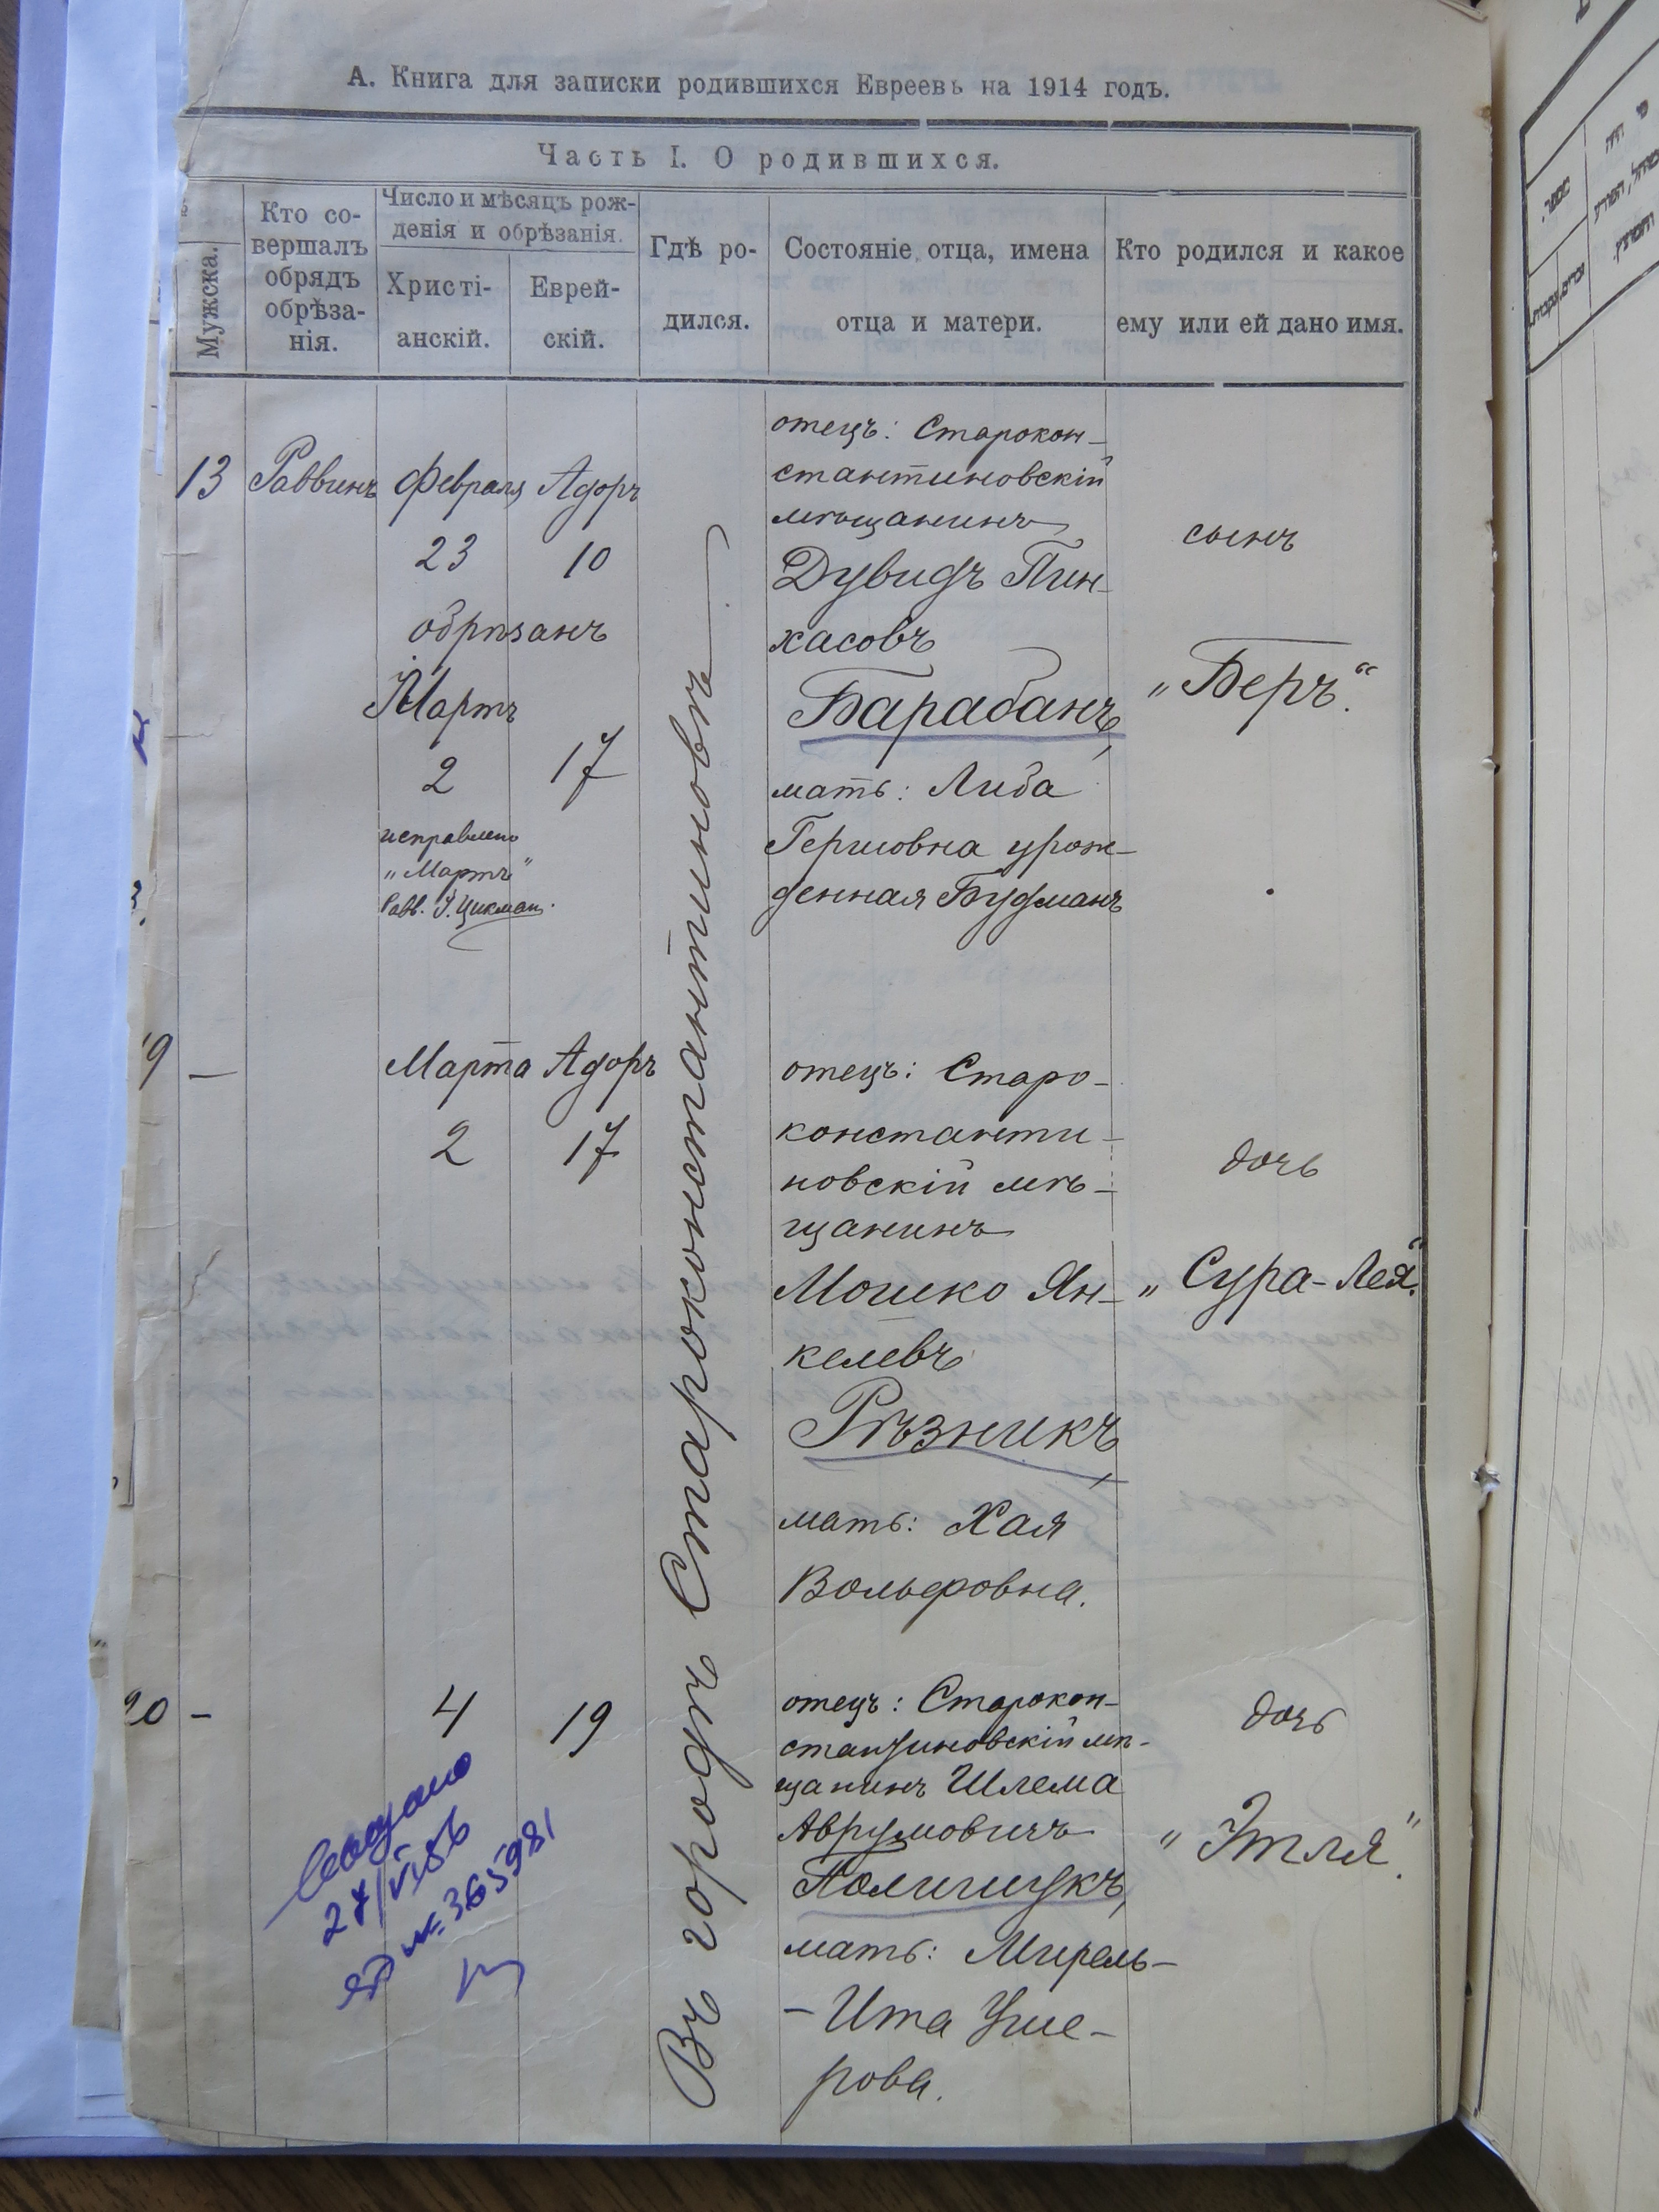 А. Книга для записки родившихся Евреевъ на 1914 годъ.
Часть I. О родившихся.
Мужска.
Кто со-
вершалъ
обрядъ
обрѣза-
нія.
Число и мѣсяцъ рож-
денія и обрѣзанія.
Христі-
анскій.
Еврей-
скій.
Гдѣ ро-
дился.
Состояніе отца, имена
отца и матери.
Кто родился и какое
ему или ей дано имя.
13
Раввинъ
Февраля
23
Адоръ
10
обрѣзанъ
Мартъ
2
17
исправлено
„Мартъ"
Равв. І. Цикман.
Въ городѣ Староконстантиновѣ
отецъ: Старокон-
стантиновскій
мѣщанинъ
Дувидъ Пин-
хасовъ
Барабанъ,
мать: Либа
Гершовна урож-
денная Будманъ
сынъ
„Беръ".
19
—
Марта
2
Адоръ
17
отецъ: Старо-
константи-
новскій мѣ-
щанинъ
Мошко Ян-
келевъ
Рѣзникъ,
мать: Хая
Вольфовна.
дочь
„Сура-Лея".
20
–
4
19
отецъ: Старокон-
стантиновскій мѣ-
щанинъ Шлема
Аврумовичъ
Полищукъ,
мать: Мирель-
-Ита Уше-
рова.
дочь
„Этля".
27/VI 56
№ 365981
מספר.
זכרים.
נקבות.